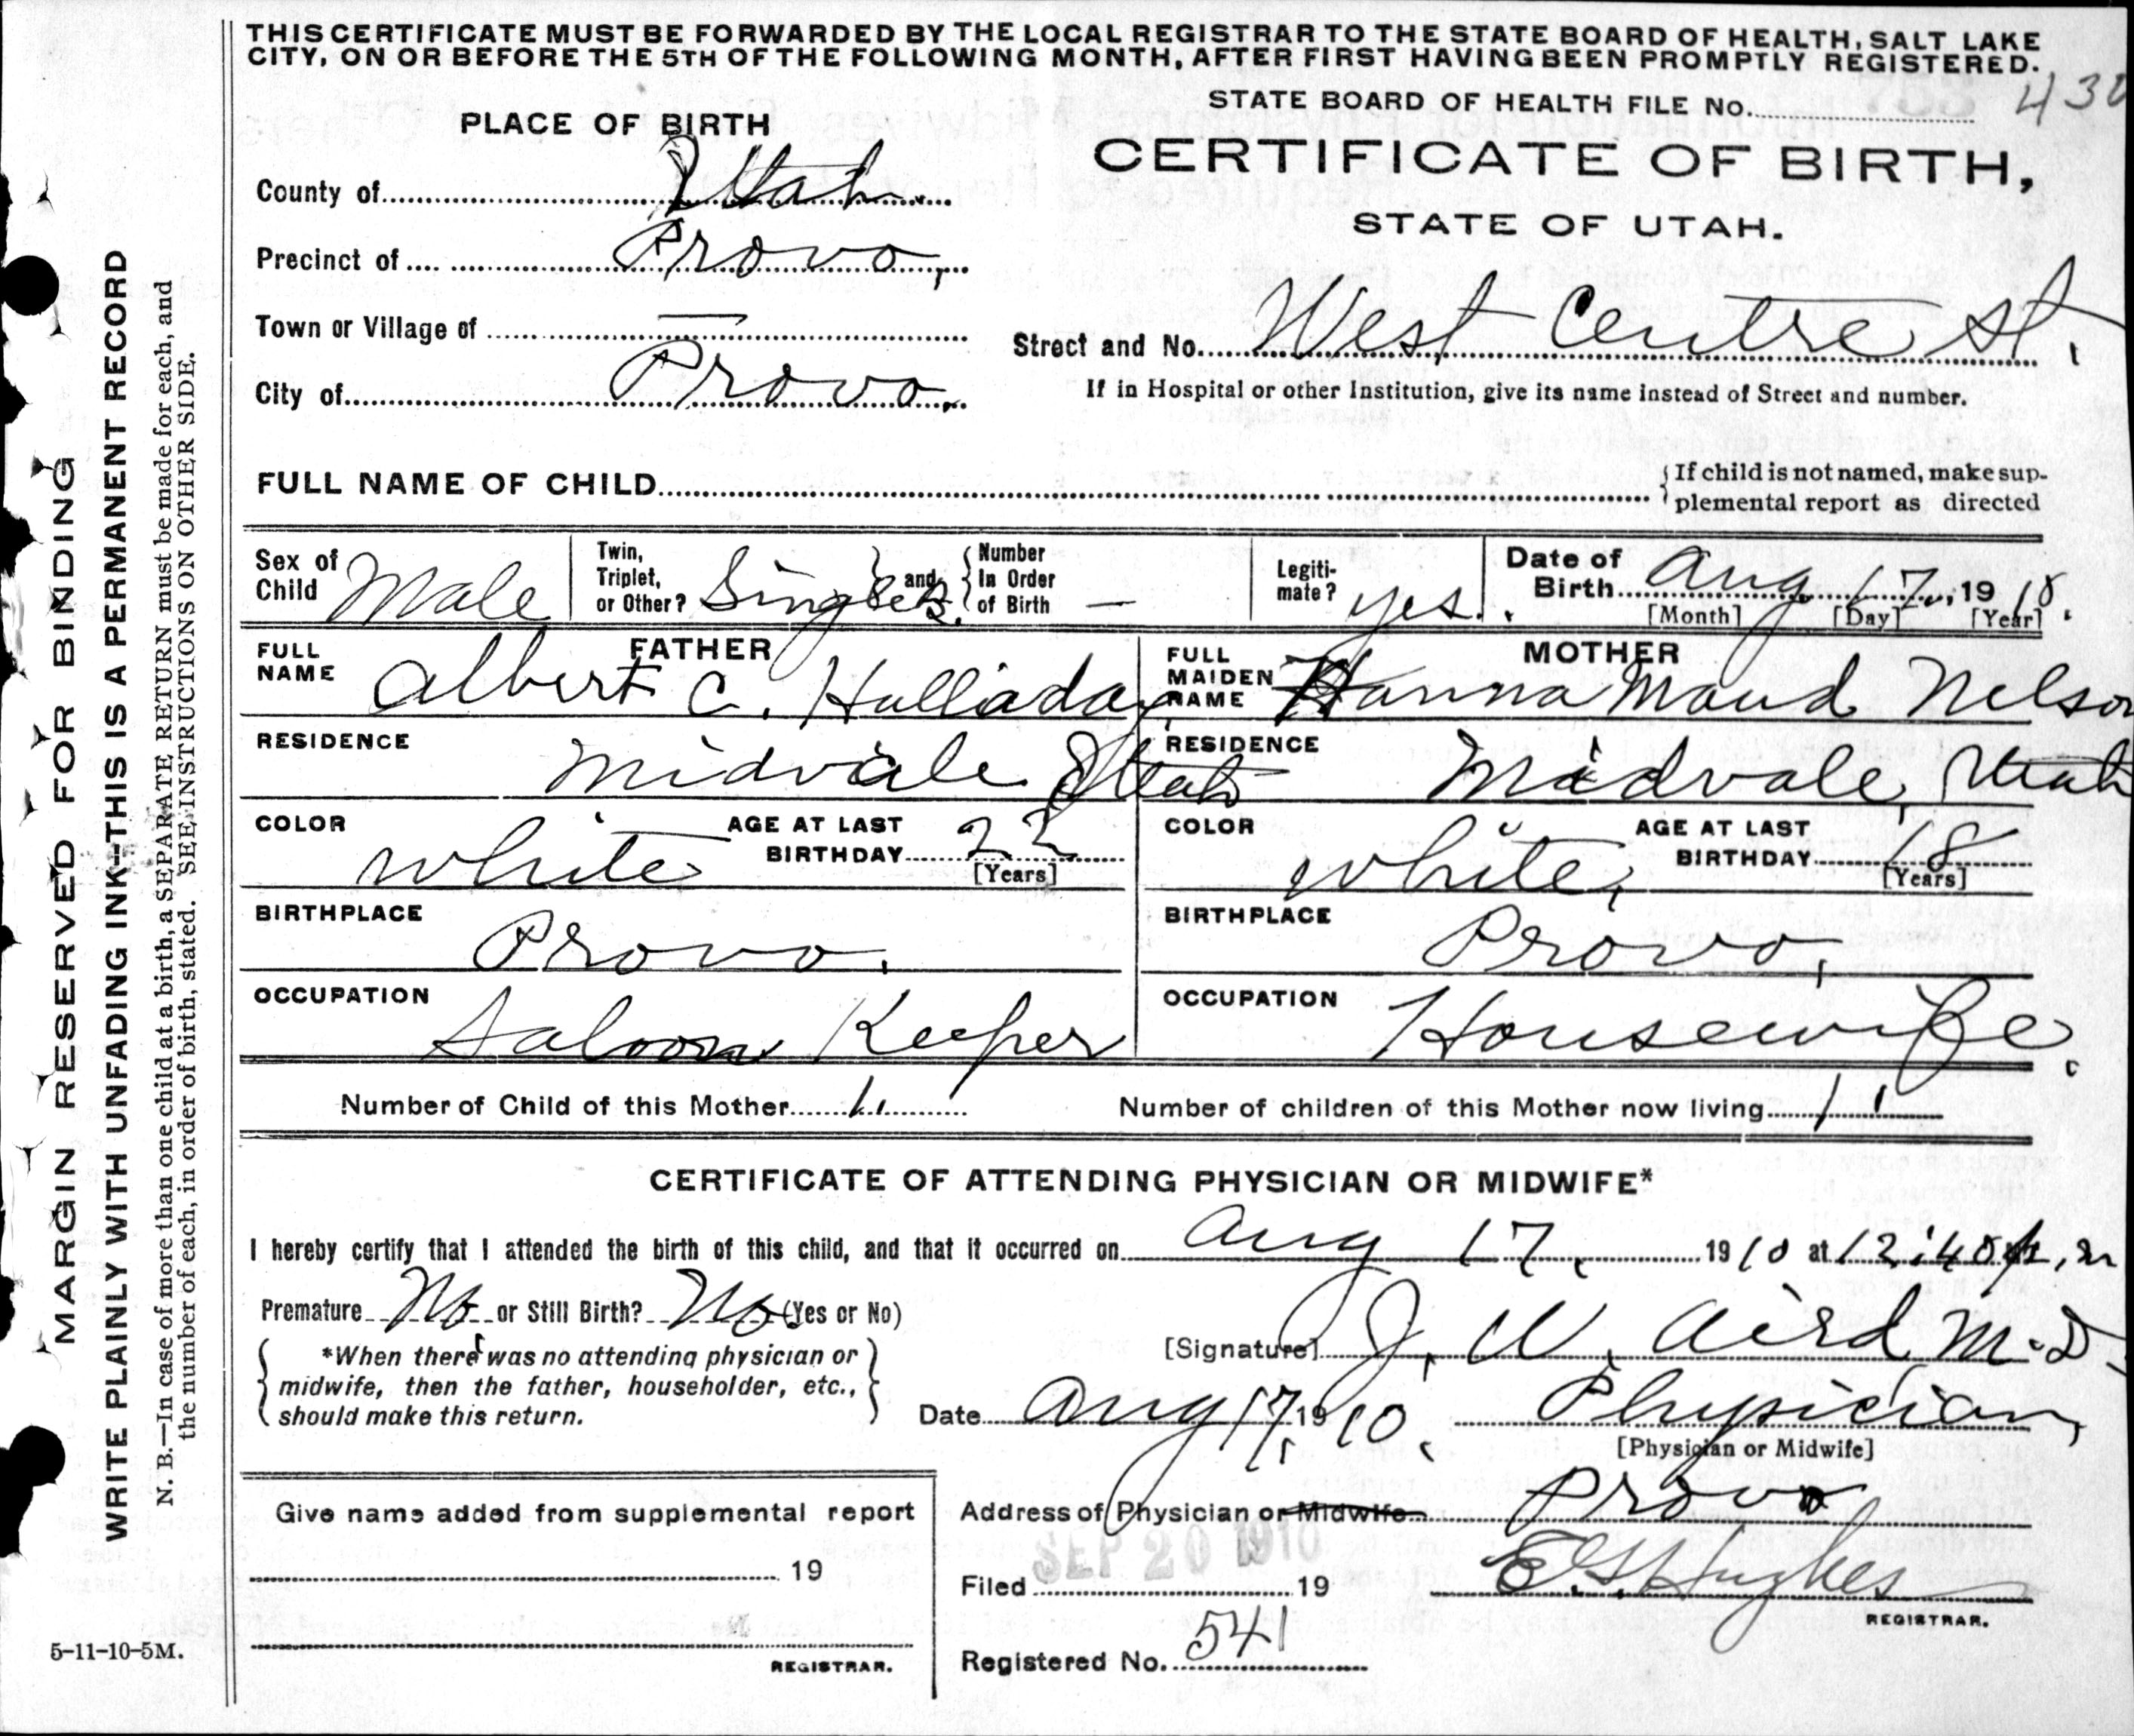 THIS CERTIFICATE MUST BE FORWARDED BY THE LOCAL REGISTRAR TO THE STATE BOARD OF HEALTH, SALT LAKE
CITY, ON OR BEFORE THE 5TH OF THE FOLLOWING MONTH, AFTER FIRST HAVING BEEN PROMPTLY REGISTERED.
STATE BOARD OF HEALTH FILE No. 430
PLACE OF BIRTH
CERTIFICATE OF BIRTH,
STATE OF UTAH.
County of Utah.
Precinct of Provo,
Town or Village of —
Street and No. West Centre St.
City of Provo.
If in Hospital or other Institution, give its name instead of Street and number.
FULL NAME OF CHILD
{If child is not named, make sup-
plemental report as directed
Sex of Child Male
Twin, Triplet, or Other? Single } and { Number In Order of Birth —
Legiti-mate? yes.
Date of Birth Aug. 17, 1910.
[Month] [Day] [Year]
FATHER
FULL NAME Albert C. Halladay
MOTHER
FULL MAIDEN NAME Hanna Maud Nelson
RESIDENCE Midvale Utah
RESIDENCE Midvale, Utah
COLOR White AGE AT LAST BIRTHDAY 22 [Years]
COLOR White, AGE AT LAST BIRTHDAY 18 [Years]
BIRTHPLACE Provo.
BIRTHPLACE Provo,
OCCUPATION Saloon Keeper
OCCUPATION Housewife.
Number of Child of this Mother 1.
Number of children of this Mother now living 1.
CERTIFICATE OF ATTENDING PHYSICIAN OR MIDWIFE*
I hereby certify that I attended the birth of this child, and that it occurred on Aug 17, 1910 at 12:40 p.m
Premature No or Still Birth? No (Yes or No)
*When there was no attending physician or
midwife, then the father, householder, etc.,
should make this return.
[Signature] J. W. Aird M.D.
Date Aug 17, 1910.
Physician,
[Physician or Midwife]
Address of Physician or Midwife Provo
Give name added from supplemental report
19
REGISTRAR.
Filed SEP 20 1910 19
E. G. Hughes
REGISTRAR.
Registered No. 541
5-11-10-5M.
MARGIN RESERVED FOR BINDING
WRITE PLAINLY WITH UNFADING INK—THIS IS A PERMANENT RECORD
N. B.—In case of more than one child at a birth, a SEPARATE RETURN must be made for each, and
the number of each, in order of birth, stated. SEE INSTRUCTIONS ON OTHER SIDE.